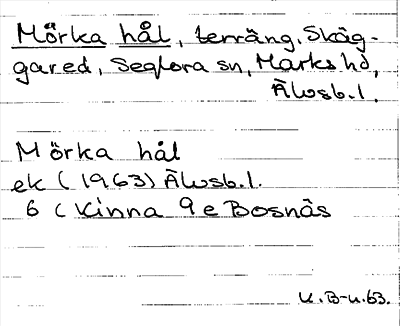 Mörka hål, terräng, Skäg-
gared, Seglora sn, Marks hd,
Älvsb.l.
Mörka hål
ek (1963) Älvsb.l.
6 C Kinna 9 e Bosnäs
K.B-n.63.